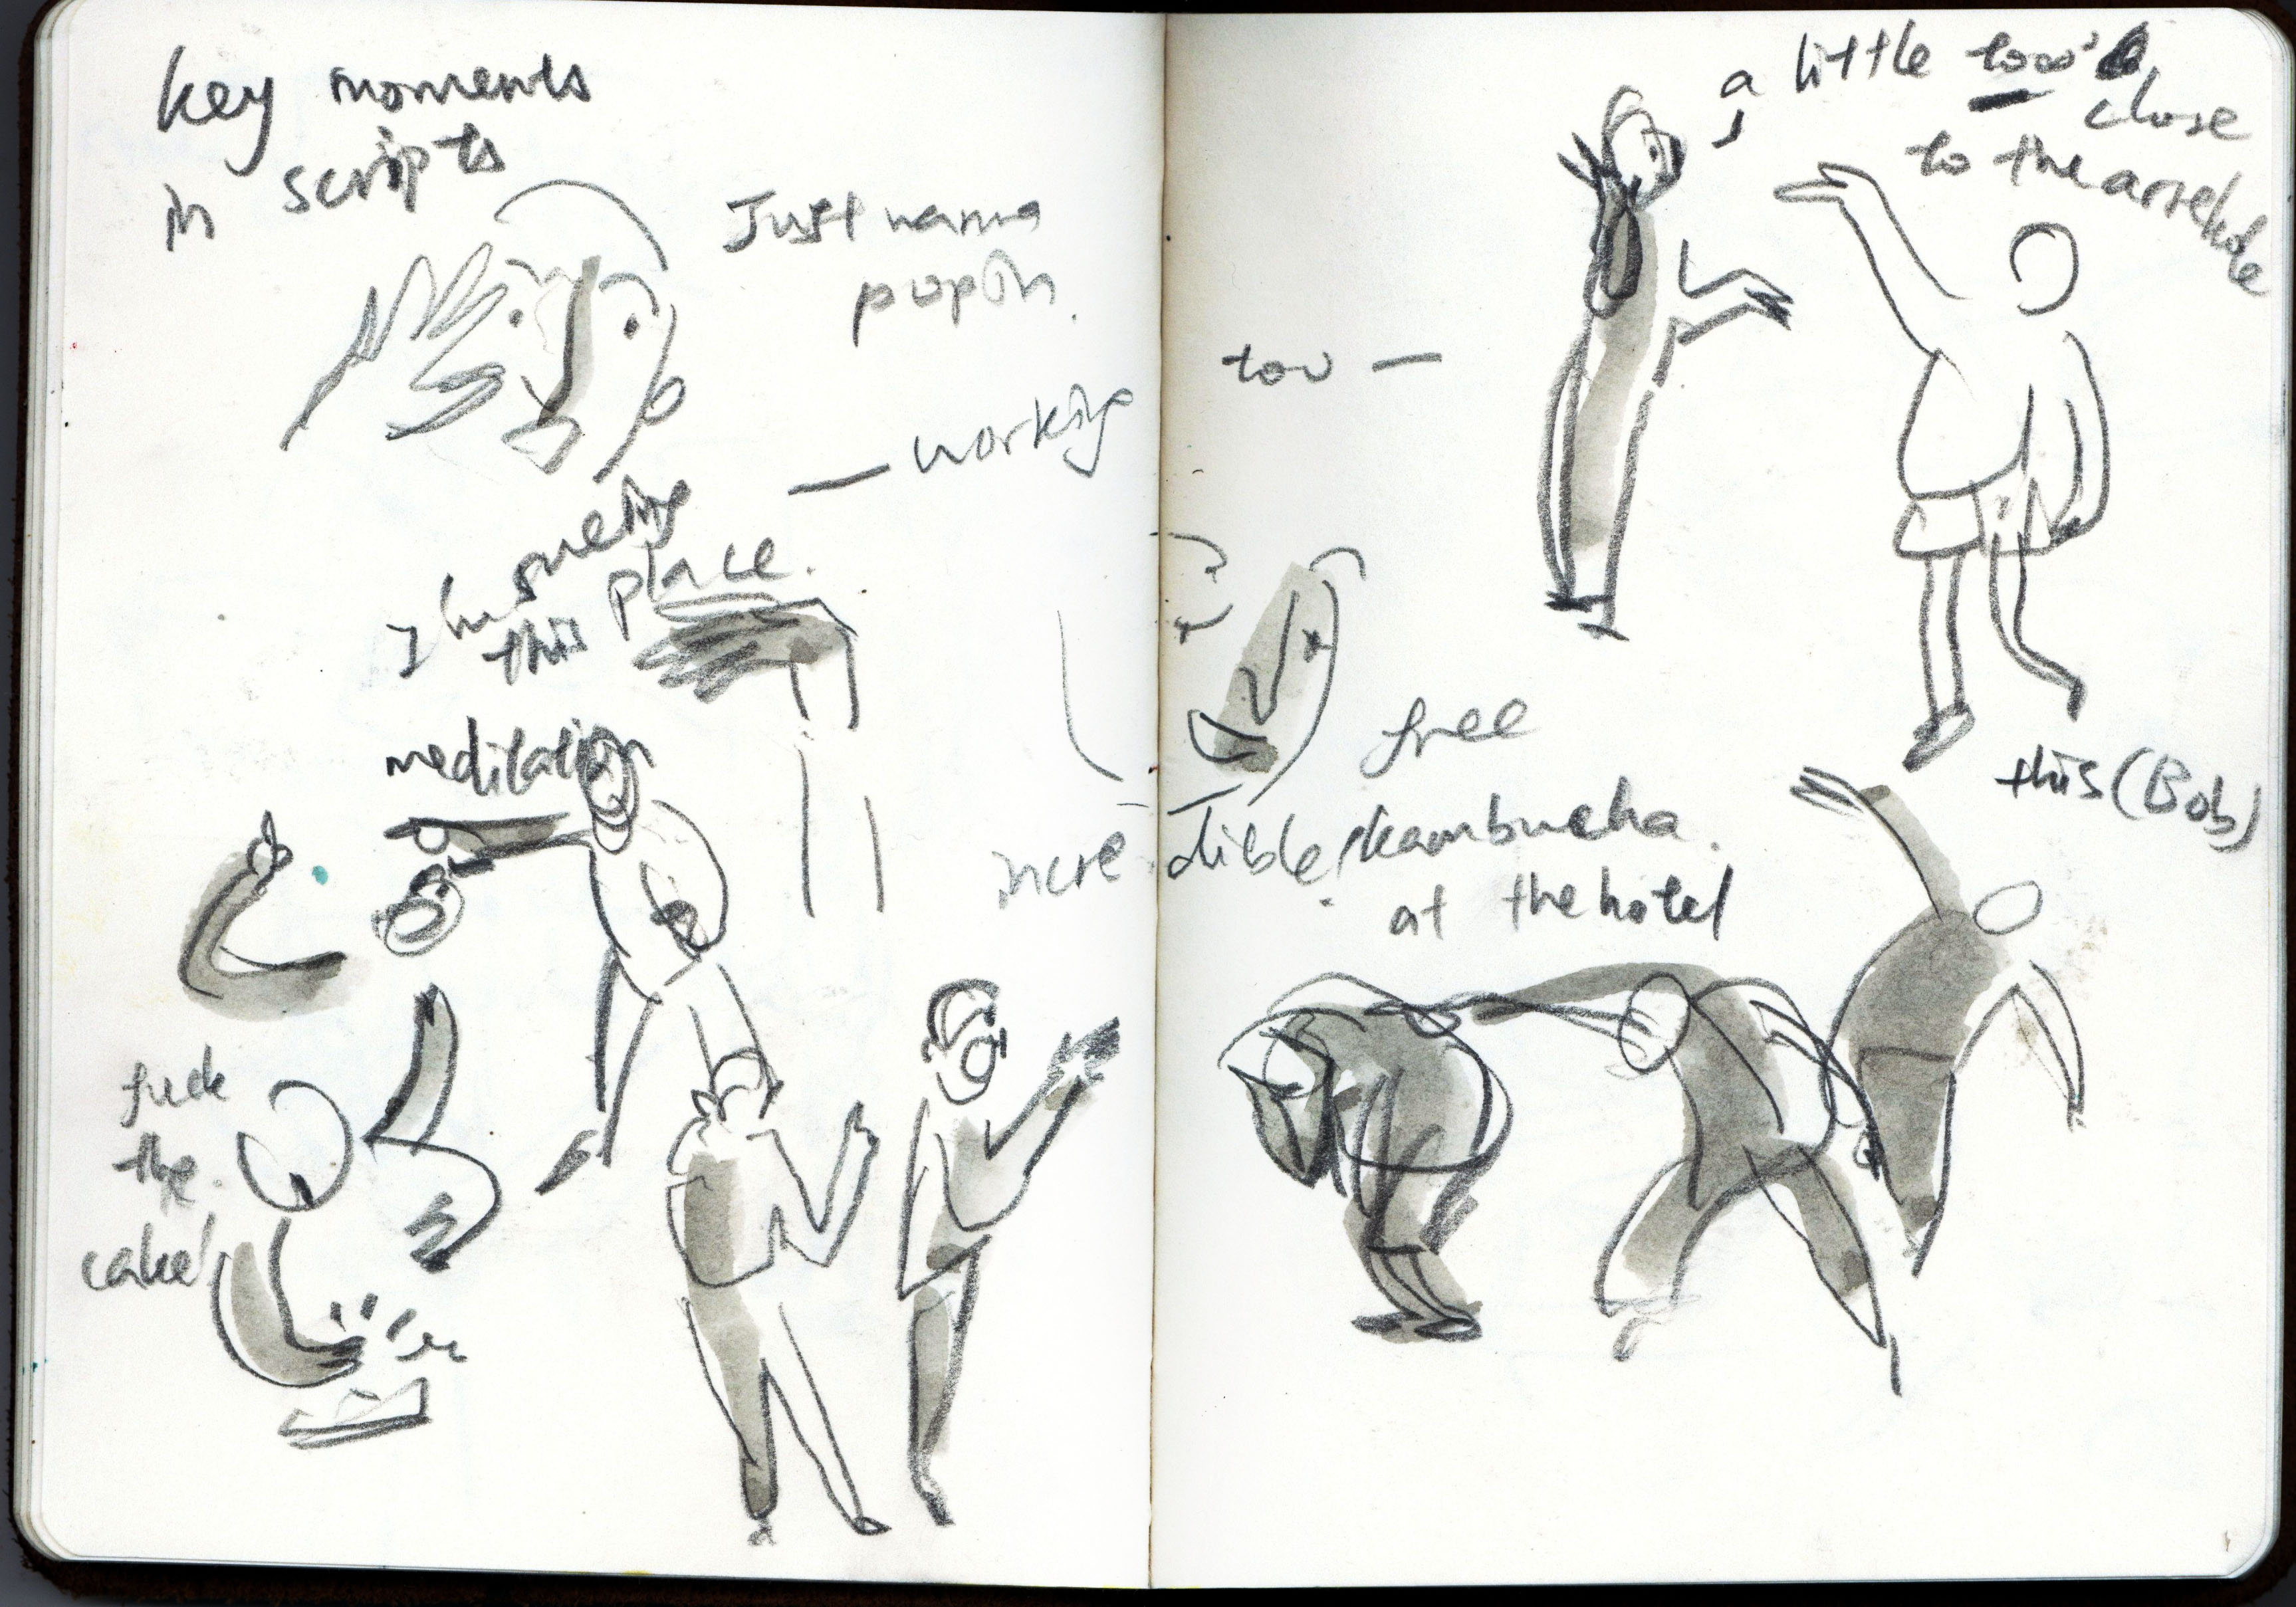 key moments
in scripts
Just wanna
pop in.
— working
this place.
meditation
fuck
the.
cake!
a little too
close
to the arsehole
too —
free
incredible/kambucha.
at the hotel
this (Bob)